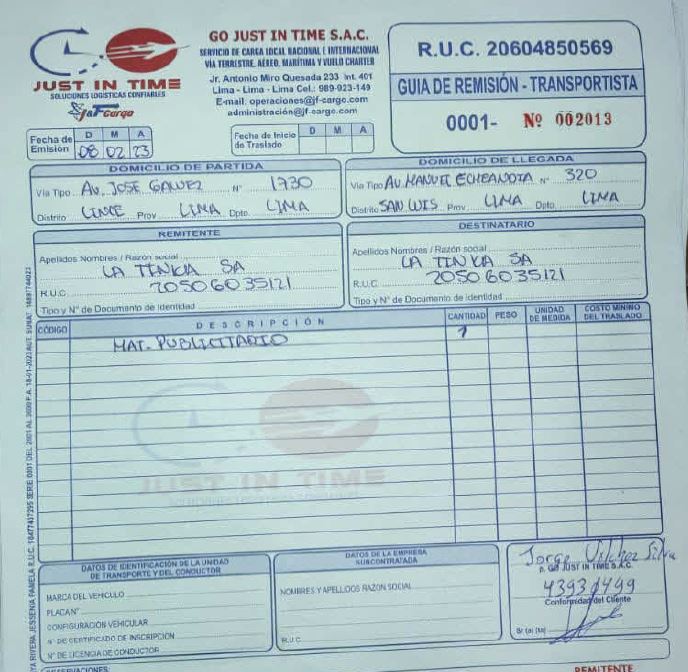 JUST IN TIME
SOLUCIONES LOGISTICAS CONFIABLES
J&F Cargo
GO JUST IN TIME S.A.C.
SERVICIO DE CARGA LOCAL NACIONAL E INTERNACIONAL
VÍA TERRESTRE, AÉREO, MARÍTIMA Y VUELO CHARTER
Jr. Antonio Miro Quesada 233 Int. 401
Lima - Lima - Lima Cel.: 989-923-149
E-mail: operaciones@jf-cargo.com
administración@jf-cargo.com
R.U.C. 20604850569
GUIA DE REMISIÓN - TRANSPORTISTA
0001- Nº 002013
Fecha de Emisión D M A
08 02 23
Fecha de Inicio de Traslado D M A
DOMICILIO DE PARTIDA
Vía Tipo AV. JOSE GALVEZ Nº 1730
Distrito LINCE Prov LIMA Dpto. LIMA
DOMICILIO DE LLEGADA
Vía Tipo AV MANUEL ECHEANDIA Nº 320
Distrito SAN LUIS Prov LIMA Dpto. LIMA
REMITENTE
Apellidos Nombres / Razón social
LA TINKA SA
R.U.C. 20506035121
Tipo y N° de Documento de Identidad
DESTINATARIO
Apellidos Nombres / Razón social
LA TINKA SA
R.U.C. 20506035121
Tipo y N° de Documento de Identidad
CÓDIGO DESCRIPCIÓN CANTIDAD PESO UNIDAD DE MEDIDA COSTO MINIMO DEL TRASLADO
MAT. PUBLICITARIO 1
JUST IN TIME
DATOS DE IDENTIFICACIÓN DE LA UNIDAD
DE TRANSPORTE Y DEL CONDUCTOR
MARCA DEL VEHICULO
PLACA Nº
CONFIGURACIÓN VEHICULAR
Nº DE CERTIFICADO DE INSCRIPCIÓN
Nº DE LICENCIA DE CONDUCTOR
DATOS DE LA EMPRESA
SUBCONTRATADA
NOMBRES Y APELLIDOS RAZON SOCIAL
R.U.C
Jorge Vilchez Silva
P. GO JUST IN TIME S.A.C.
Conformidad del Cliente
Sr (a) (ta)
OBSERVACIONES:
REMITENTE